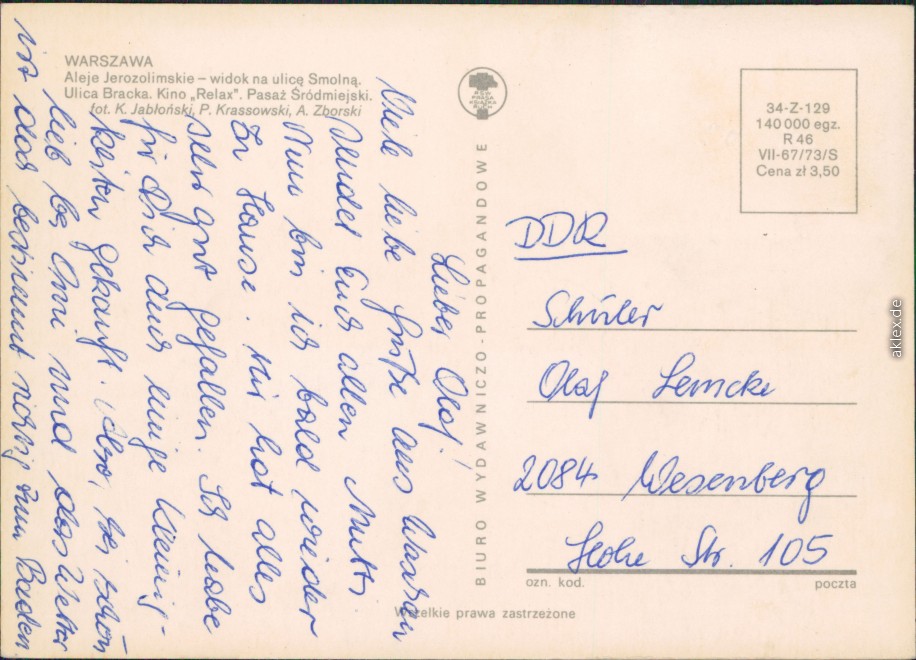 WARSZAWA
Aleje Jerozolimskie – widok na ulicę Smolną.
Ulica Bracka. Kino „Relax". Pasaż Śródmiejski.
fot. K. Jabłoński, P. Krassowski, A. Zborski
Lieber Olaf!
Viele liebe Grüße aus Warschau
sendet Euch allen Mutti
Nun bin ich bald wieder
zu Hause. Mir hat alles
sehr gut gefallen. Ich habe
für Dich auch einige Kleinig-
keiten gekauft. Also, sei schön
lieb bei Omi und das Wetter
ist doch bestimmt richtig zum Baden
BIURO WYDAWNICZO-PROPAGANDOWE
RSW
PRASA
KSIĄŻKA
RUCH
34-Z-129
140 000 egz.
R 46
VII-67/73/S
Cena zł 3,50
DDR
Schüler
Olaf Lemcke
2084 Wesenberg
Hohe Str. 105
ozn. kod. poczta
Wszelkie prawa zastrzeżone
aklex.de